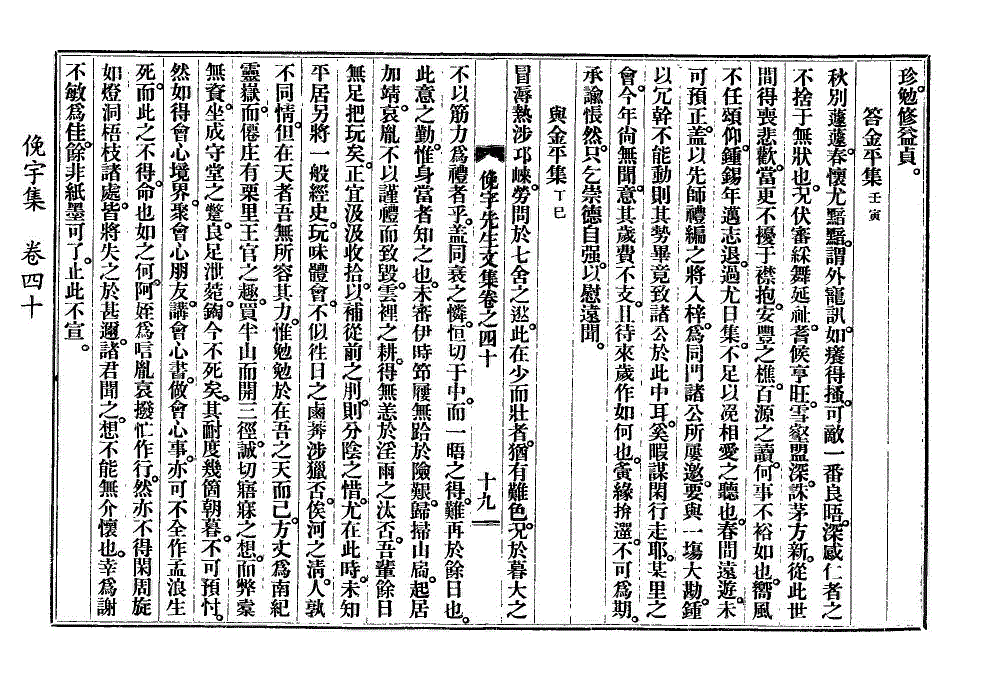 珍。勉修益貞。
答金平集 壬寅
秋別蘧蘧。春懷尤黯黯。謂外寵訊。如癢得搔。可敵一番良晤。深感仁者之
不捨于無狀也。況伏審綵舞延祉。耆候亨旺。雪壑盟深。誅茅方新。從此世
間得喪悲歡。當更不擾于襟抱。安豐之樵。百源之讀。何事不裕如也。嚮風
不任頌仰。鍾錫年邁志退。過尤日集。不足以浼相愛之聽也。春間遠遊。未
可預正。盖以先師禮編之將入梓。爲同門諸公所屢邀。要與一塲大勘。鍾
以冗幹不能動。則其勢畢竟致諸公於此中耳。奚暇謀閑行走耶。某里之
會。今年尙無聞。意其歲費不支。且待來歲作如何也。夤緣拚邅。不可爲期。
承諭悵然。只乞崇德自强。以慰遠聞。
與金平集 丁巳
冒溽熱涉邛崍。勞問於七舍之逖。此在少而壯者。猶有難色。况於暮大之
俛宇先生文集卷之四十 十九
不以筋力爲禮者乎。盖同衰之憐。恒切于中。而一晤之得。難再於餘日也。
此意之勤。惟身當者知之也。未審伊時節屨無跲於險艱。歸掃山扃。起居
加靖。哀胤不以謹禮而致毁。雲裡之耕。得無恙於淫雨之汰否。吾輩餘日
無足把玩矣。正宜汲汲收拾。以補從前之刖。則分陰之惜。尤在此時。未知
平居另將一般經史。玩味體會。不似徃日之鹵莽涉獵否。俟河之淸。人孰
不同情。但在天者吾無所容其力。惟勉勉於在吾之天而已。方丈爲南紀
靈嶽。而倦庄有栗里王官之趣。買半山而開三徑。誠切寤寐之想。而弊橐
無資。坐成守堂之蹩。良足泄菀。鋾今不死矣。其耐度幾箇朝暮。不可預忖。
然如得會心境界。聚會心朋友。講會心書。做會心事。亦可不全作孟浪生
死。而此之不得。命也如之何。阿姪爲唁胤哀撥忙作行。然亦不得閑周旋
如燈洞梧枝諸處。皆將失之於甚邇。諸君聞之。想不能無介懷也。幸爲謝
不敏爲佳。餘非紙墨可了。止此不宣。
俛宇集 卷四十